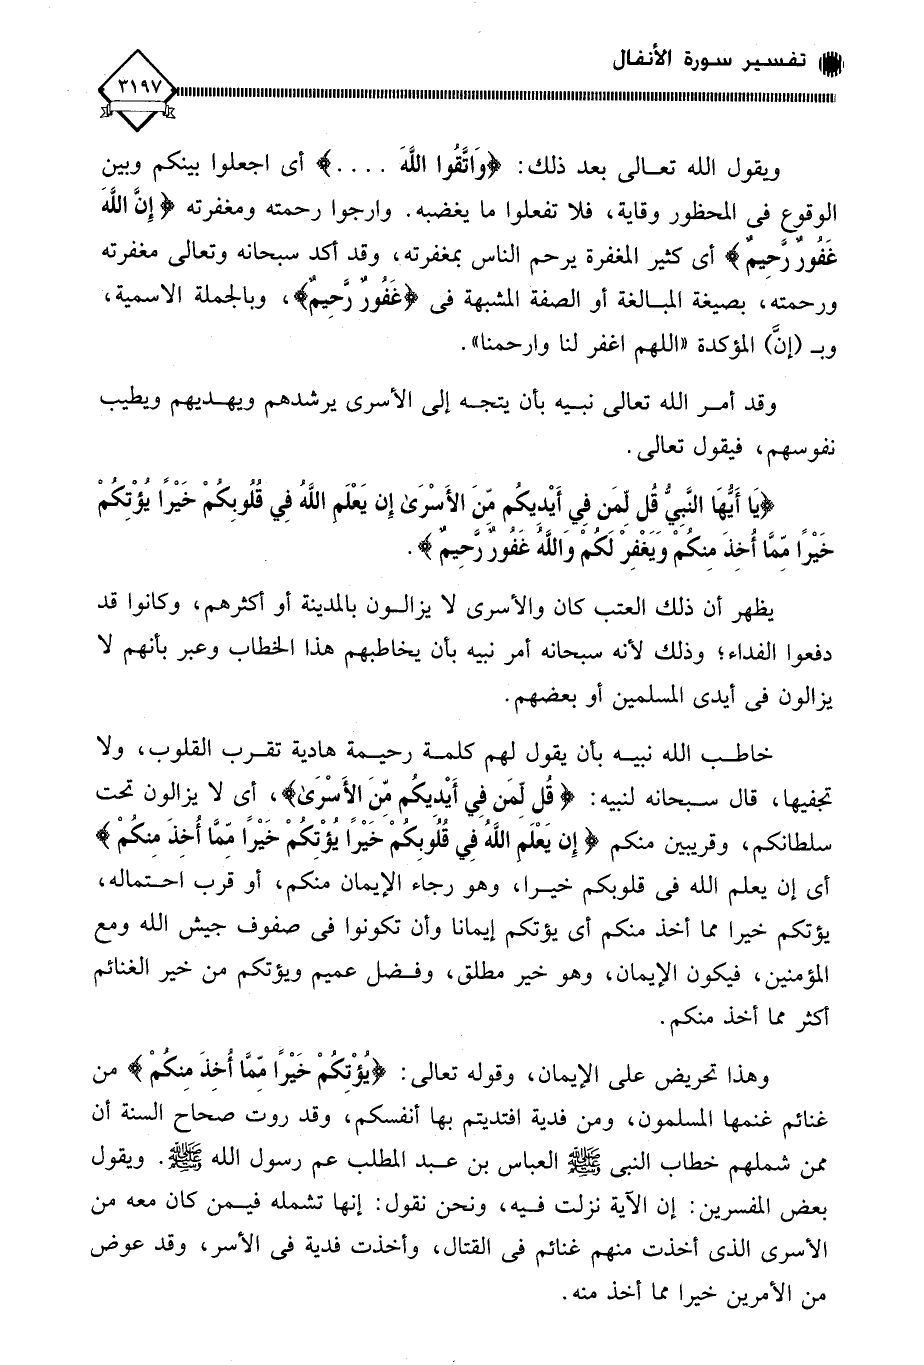 تفسير سورة الأنفال
٣١٩٧
ويقول الله تعالى بعد ذلك: ﴿وَاتَّقُوا اللَّهَ ....﴾ أى اجعلوا بينكم وبين
الوقوع فى المحظور وقاية، فلا تفعلوا ما يغضبه. وارجوا رحمته ومغفرته ﴿إِنَّ اللَّهَ
غَفُورٌ رَّحِيمٌ﴾ أى كثير المغفرة يرحم الناس بمغفرته، وقد أكد سبحانه وتعالى مغفرته
ورحمته، بصيغة المبالغة أو الصفة المشبهة فى ﴿غَفُورٌ رَّحِيمٌ﴾، وبالجملة الاسمية،
وبـ (إنَّ) المؤكدة «اللهم اغفر لنا وارحمنا».
وقد أمر الله تعالى نبيه بأن يتجه إلى الأسرى يرشدهم ويهديهم ويطيب
نفوسهم، فيقول تعالى.
﴿يَا أَيُّهَا النَّبِيُّ قُل لِّمَن فِي أَيْدِيكُم مِّنَ الأَسْرَىٰ إِن يَعْلَمِ اللَّهُ فِي قُلُوبِكُمْ خَيْرًا يُؤْتِكُمْ
خَيْرًا مِّمَّا أُخِذَ مِنكُمْ وَيَغْفِرْ لَكُمْ وَاللَّهُ غَفُورٌ رَّحِيمٌ﴾.
يظهر أن ذلك العتب كان والأسرى لا يزالون بالمدينة أو أكثرهم، وكانوا قد
دفعوا الفداء؛ وذلك لأنه سبحانه أمر نبيه بأن يخاطبهم هذا الخطاب وعبر بأنهم لا
يزالون فى أيدى المسلمين أو بعضهم.
خاطب الله نبيه بأن يقول لهم كلمة رحيمة هادية تقرب القلوب، ولا
تجفيها، قال سبحانه لنبيه: ﴿قُل لِّمَن فِي أَيْدِيكُم مِّنَ الأَسْرَىٰ﴾، أى لا يزالون تحت
سلطانكم، وقريبين منكم ﴿إِن يَعْلَمِ اللَّهُ فِي قُلُوبِكُمْ خَيْرًا يُؤْتِكُمْ خَيْرًا مِّمَّا أُخِذَ مِنكُمْ﴾
أى إن يعلم الله فى قلوبكم خيرا، وهو رجاء الإيمان منكم، أو قرب احتماله،
يؤتكم خيرا مما أخذ منكم أى يؤتكم إيمانا وأن تكونوا فى صفوف جيش الله ومع
المؤمنين، فيكون الإيمان، وهو خير مطلق، وفضل عميم ويؤتكم من خير الغنائم
أكثر مما أخذ منكم.
وهذا تحريض على الإيمان، وقوله تعالى: ﴿يُؤْتِكُمْ خَيْرًا مِّمَّا أُخِذَ مِنكُمْ﴾ من
غنائم غنمها المسلمون، ومن فدية افتديتم بها أنفسكم، وقد روت صحاح السنة أن
ممن شملهم خطاب النبى ﷺ العباس بن عبد المطلب عم رسول الله ﷺ. ويقول
بعض المفسرين: إن الآية نزلت فيه، ونحن نقول: إنها تشمله فيمن كان معه من
الأسرى الذى أخذت منهم غنائم فى القتال، وأخذت فدية فى الأسر، وقد عوض
من الأمرين خيرا مما أخذ منه.